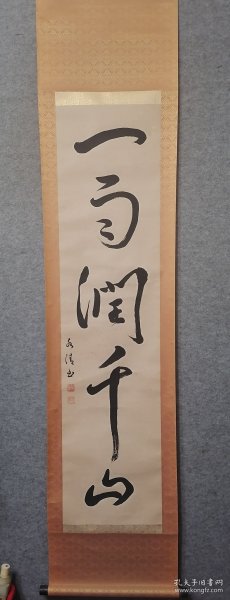 一雨潤千山
孔夫子旧书网
www.kongfz.com